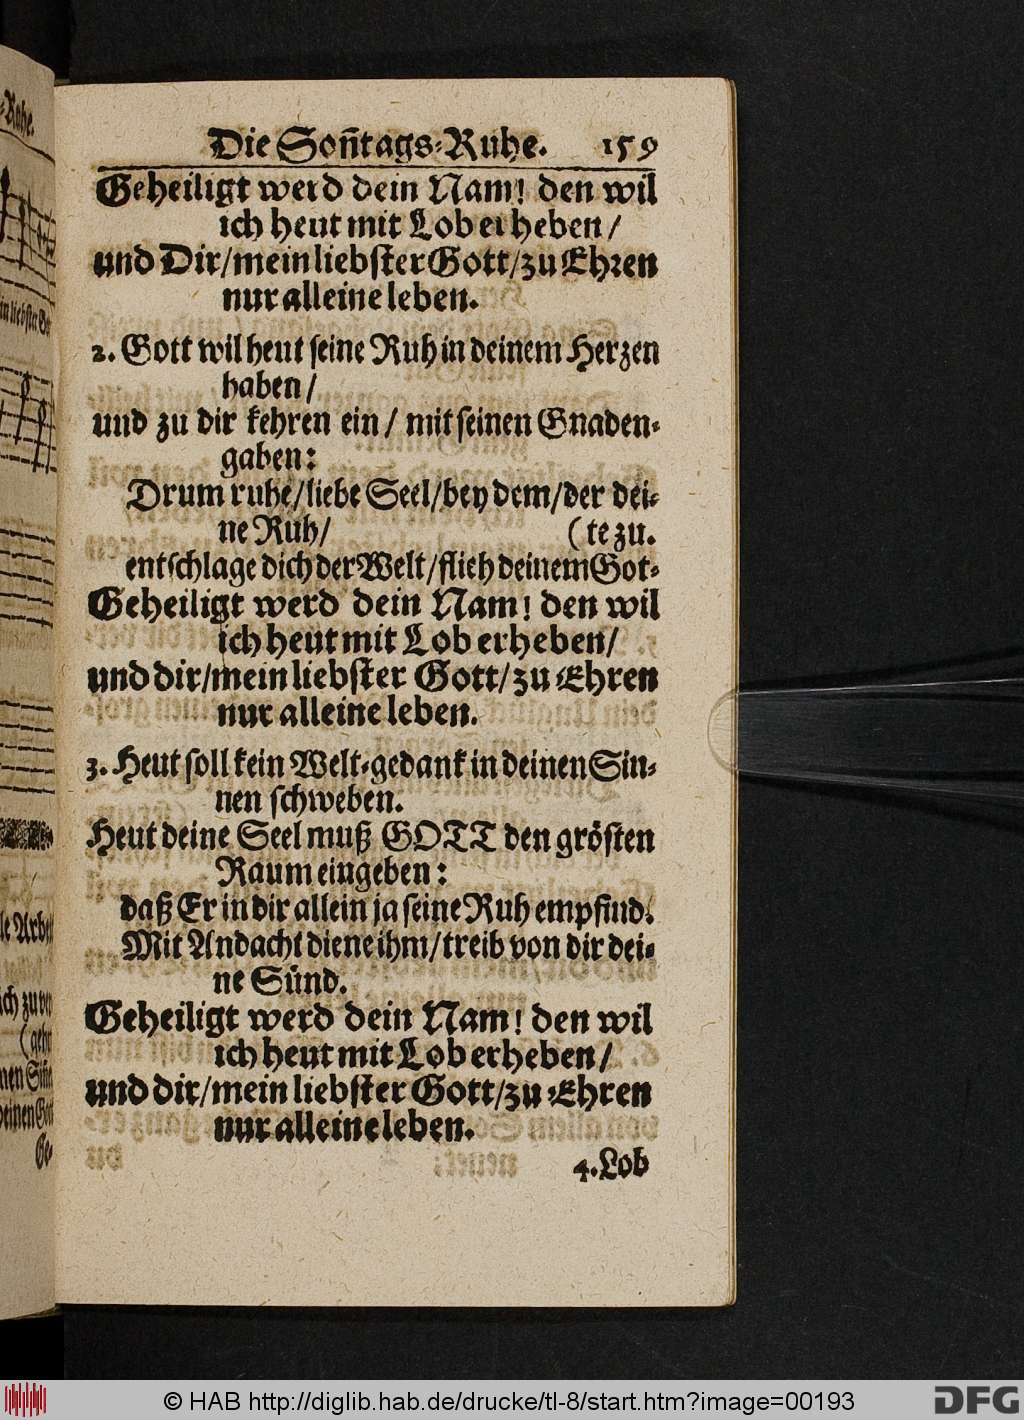 Die Soñtags-Ruhe. 159
Geheiligt werd dein Nam! den wil
ich heut mit Lob erheben/
und Dir/mein liebster Gott/zu Ehren
nur alleine leben.
2. Gott wil heut seine Ruh in deinem Herzen
haben/
und zu dir kehren ein/ mit seinen Gnaden-
gaben:
Drum ruhe/liebe Seel/bey dem/der dei-
ne Ruh/ (te zu.
entschlage dich der Welt/flieh deinem Got-
Geheiligt werd dein Nam! den wil
ich heut mit Lob erheben/
und dir/mein liebster Gott/zu Ehren
nur alleine leben.
3. Heut soll kein Welt-gedank in deinen Sin-
nen schweben.
Heut deine Seel muß GOTT den grösten
Raum eingeben:
daß Er in dir allein ja seine Ruh empfind.
Mit Andacht diene ihm/treib von dir dei-
ne Sünd.
Geheiligt werd dein Nam! den wil
ich heut mit Lob erheben/
und dir/mein liebster Gott/zu Ehren
nur alleine leben.
4. Lob
© HAB http://diglib.hab.de/drucke/tl-8/start.htm?image=00193
DFG